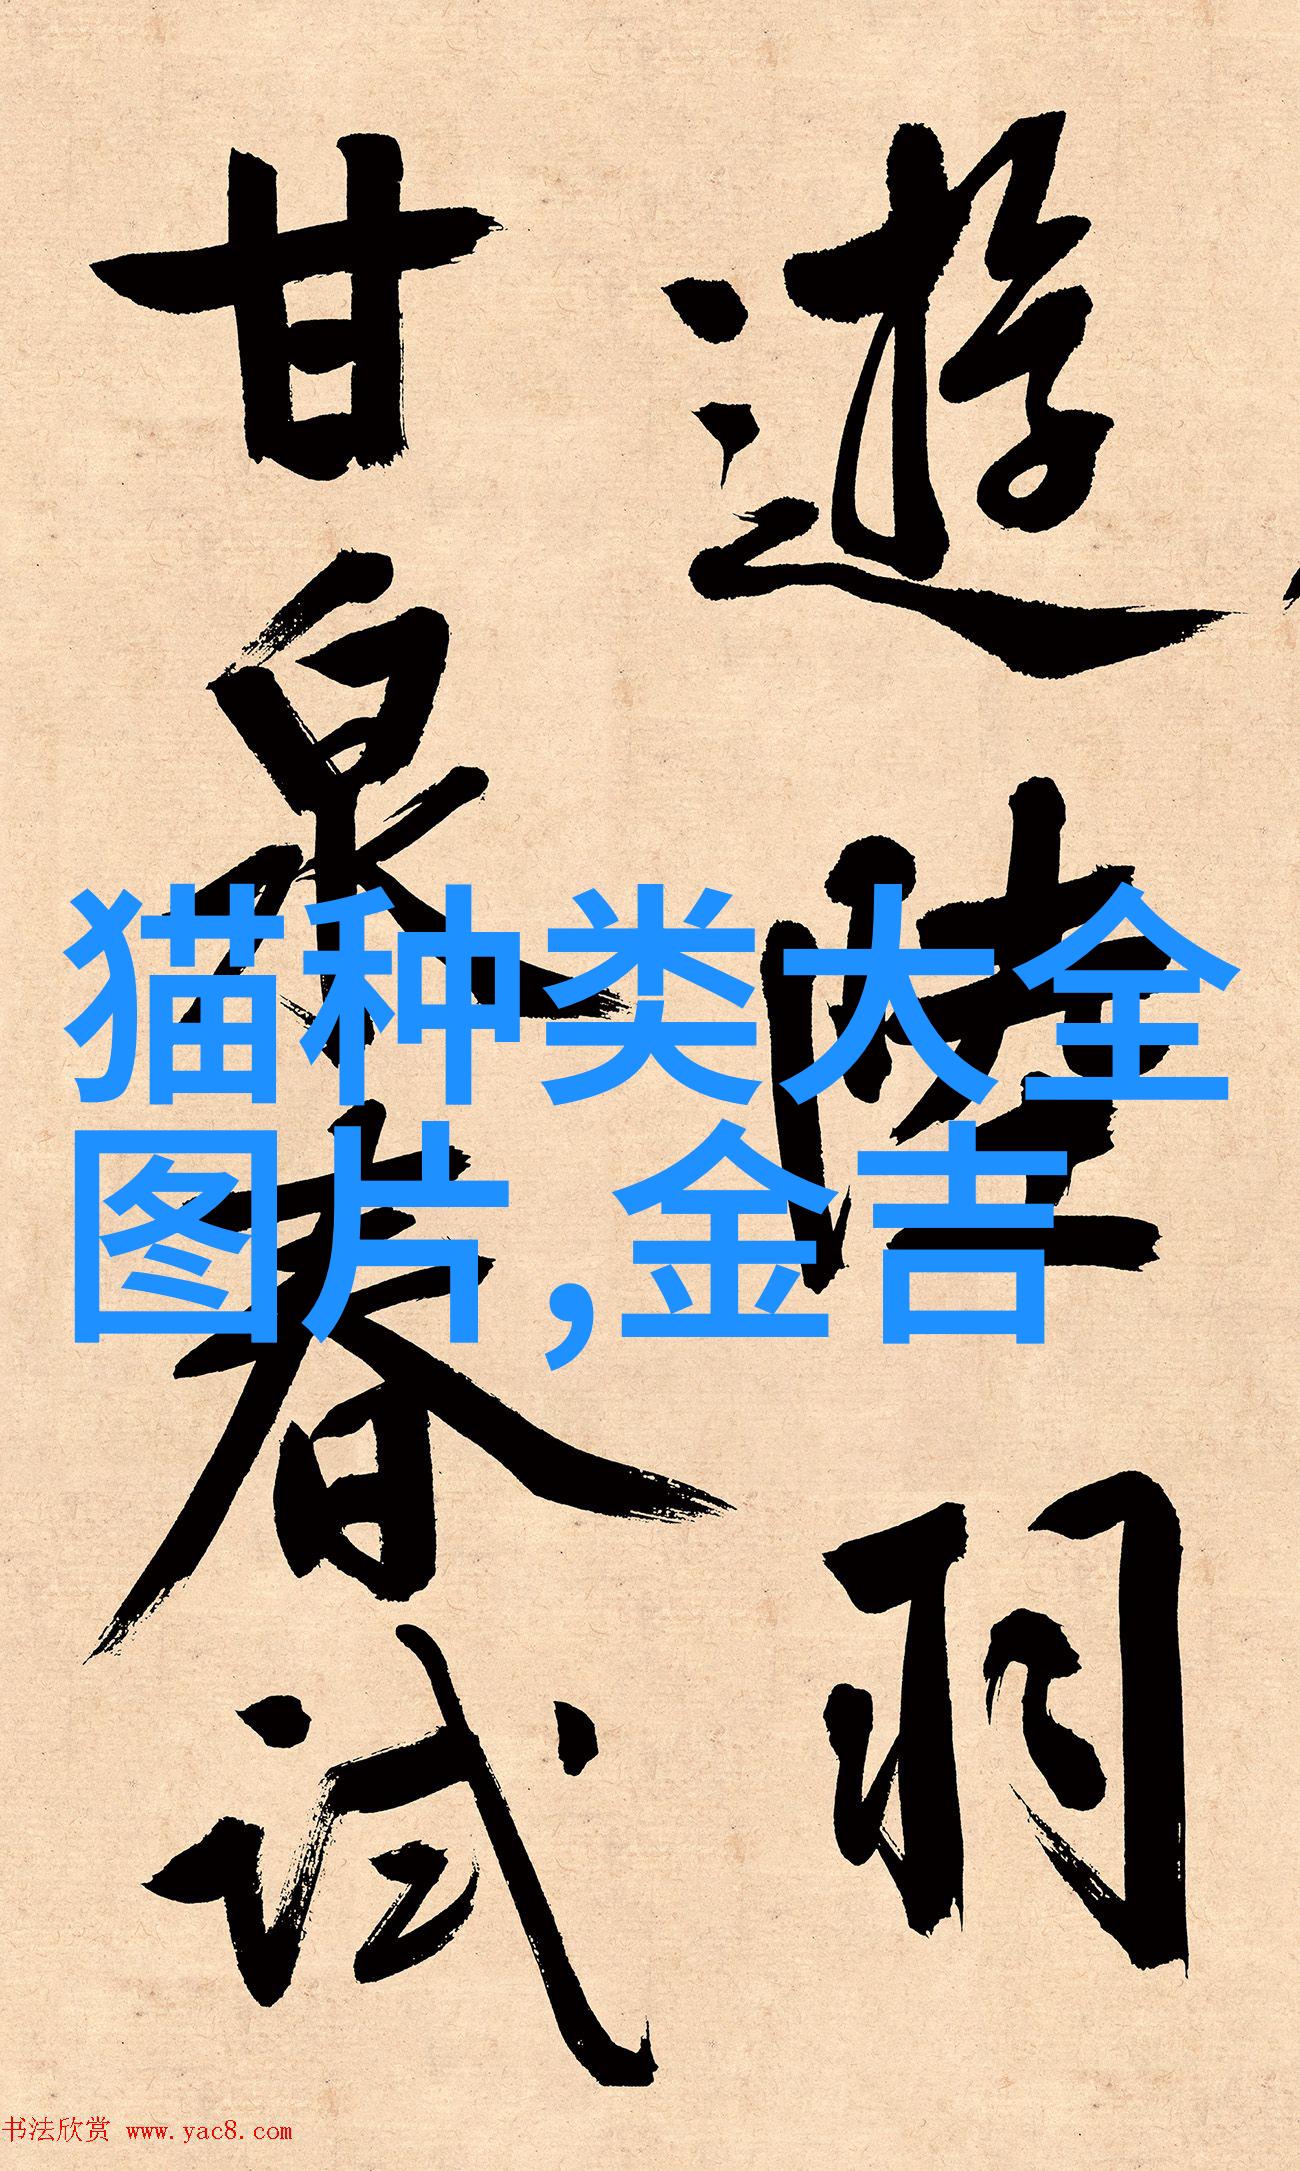 遊陸羽
甘泉春试
猫种类大全
图片,金吉
书法欣赏 www.yac8.com